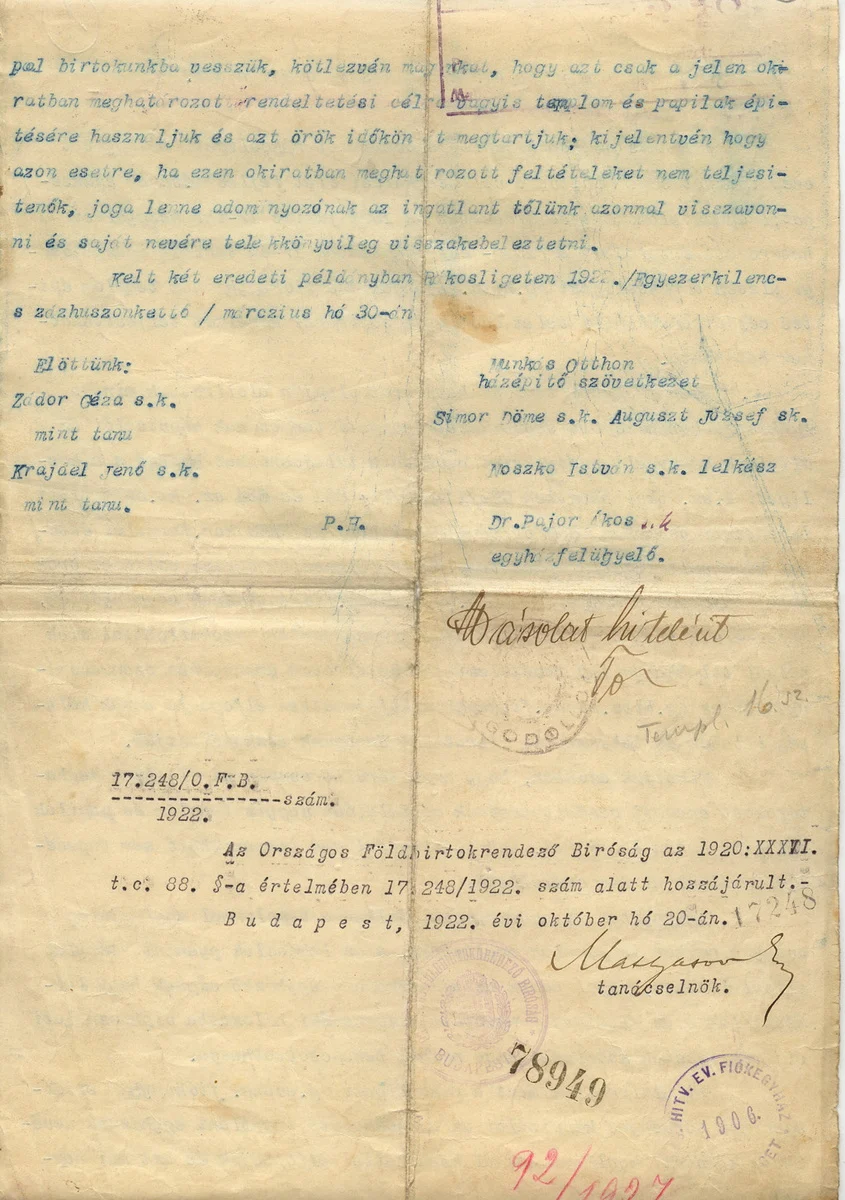 pal birtokunkba vesszük, kötlezvén magunkat, hogy azt csak a jelen ok-
ratban meghatározott rendeltetési célra vagyis templom és papilak épi-
tésére használjuk és azt örök időkön át megtartjuk; kijelentvén hogy
azon esetre, ha ezen okiratban meghatározott feltételeket nem teljesi-
tenők, joga lenne adom nyozónak az ingatlant tőlünk azonnal visszavon-
ni és saját nevére telekkönyvileg visszakebeleztetni.
Kelt két eredeti példányban Rákosligeten 1922./Egyezerkilenc-
s zázhuszonkettő / márczius hó 30-án
Előttünk:
Zádor Géza s.k.
mint tanu
Krajdel Jenő s.k.
mint tanu.
P.H.
Munkás Otthon
házépitő szövetkezet
Simor Döme s.k. Auguszt József sk.
Noszko István s.k. lelkész
Dr.Pajor Ákos s.k
egyházfelügyelő.
Másolat hiteléül
GÖDÖL
Templ. 16. sz.
17.248/O.F.B.
-----------------szám.
1922.
Az Országos Földbirtokrendező Biróság az 1920:XXXVI.
t.c. 88. §-a értelmében 17.248/1922. szám alatt hozzájárult.-
Budapest, 1922. évi október hó 20-án.
17248
tanácselnök.
BUDAPEST
78949
HITV. EV. FIÓKEGYHÁZ
1906.
92/1927